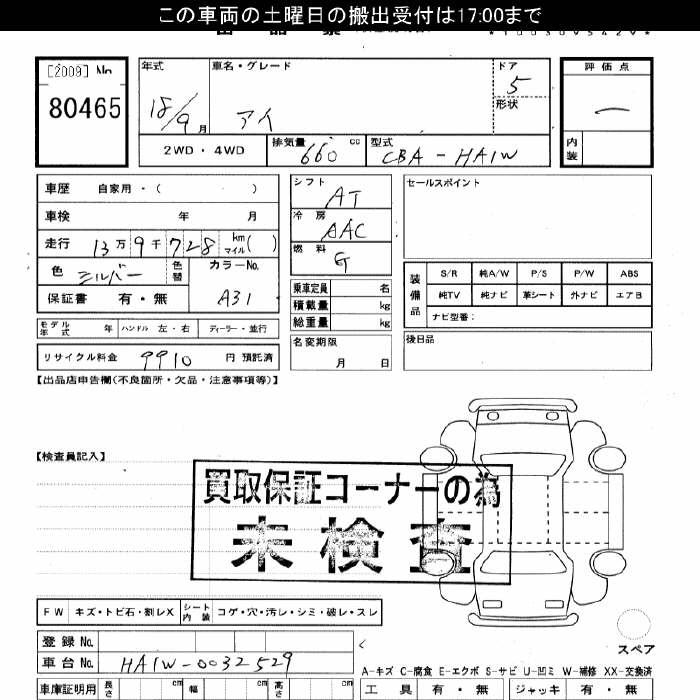 この車両の土曜日の搬出受付は17:00まで
[2009] No 80465
年式 18/9月
車名・グレード アイ
ドア 5
形状
評価点 ー
内装
2WD・4WD
排気量 660 cc
型式 CBA-HA1W
車歴 自家用・( )
車検 年 月
走行 13万9千728 km マイル( )
色 シルバー 色替
カラーNo. A31
保証書 有・無
シフト AT
冷房 AAC
燃料 G
乗車定員 名
積載量 kg
総重量 kg
セールスポイント
装備品 S/R 純A/W P/S P/W ABS
純TV 純ナビ 革シート 外ナビ エアB
ナビ型番:
モデル年式 年 ハンドル 左・右 ディーラー・並行
名変期限 月 日
後日品
リサイクル料金 9910 円 預託済
【出品店申告欄(不良箇所・欠品・注意事項等)】
【検査員記入】
買取保証コーナーの為
未検査
FW キズ・トビ石・割レX シート内装 コゲ・穴・汚レ・シミ・破レ・スレ
登録No.
車台No. HA1W-0032529
スペア
A-キズ C-腐食 E-エクボ S-サビ U-凹ミ W-補修 XX-交換済
車庫証明用 長さ cm 幅 cm 高さ cm
工具 有・無 ジャッキ 有・無